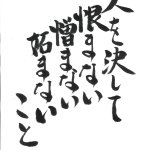 人を決して
恨まない
憎まない
妬まない
こと